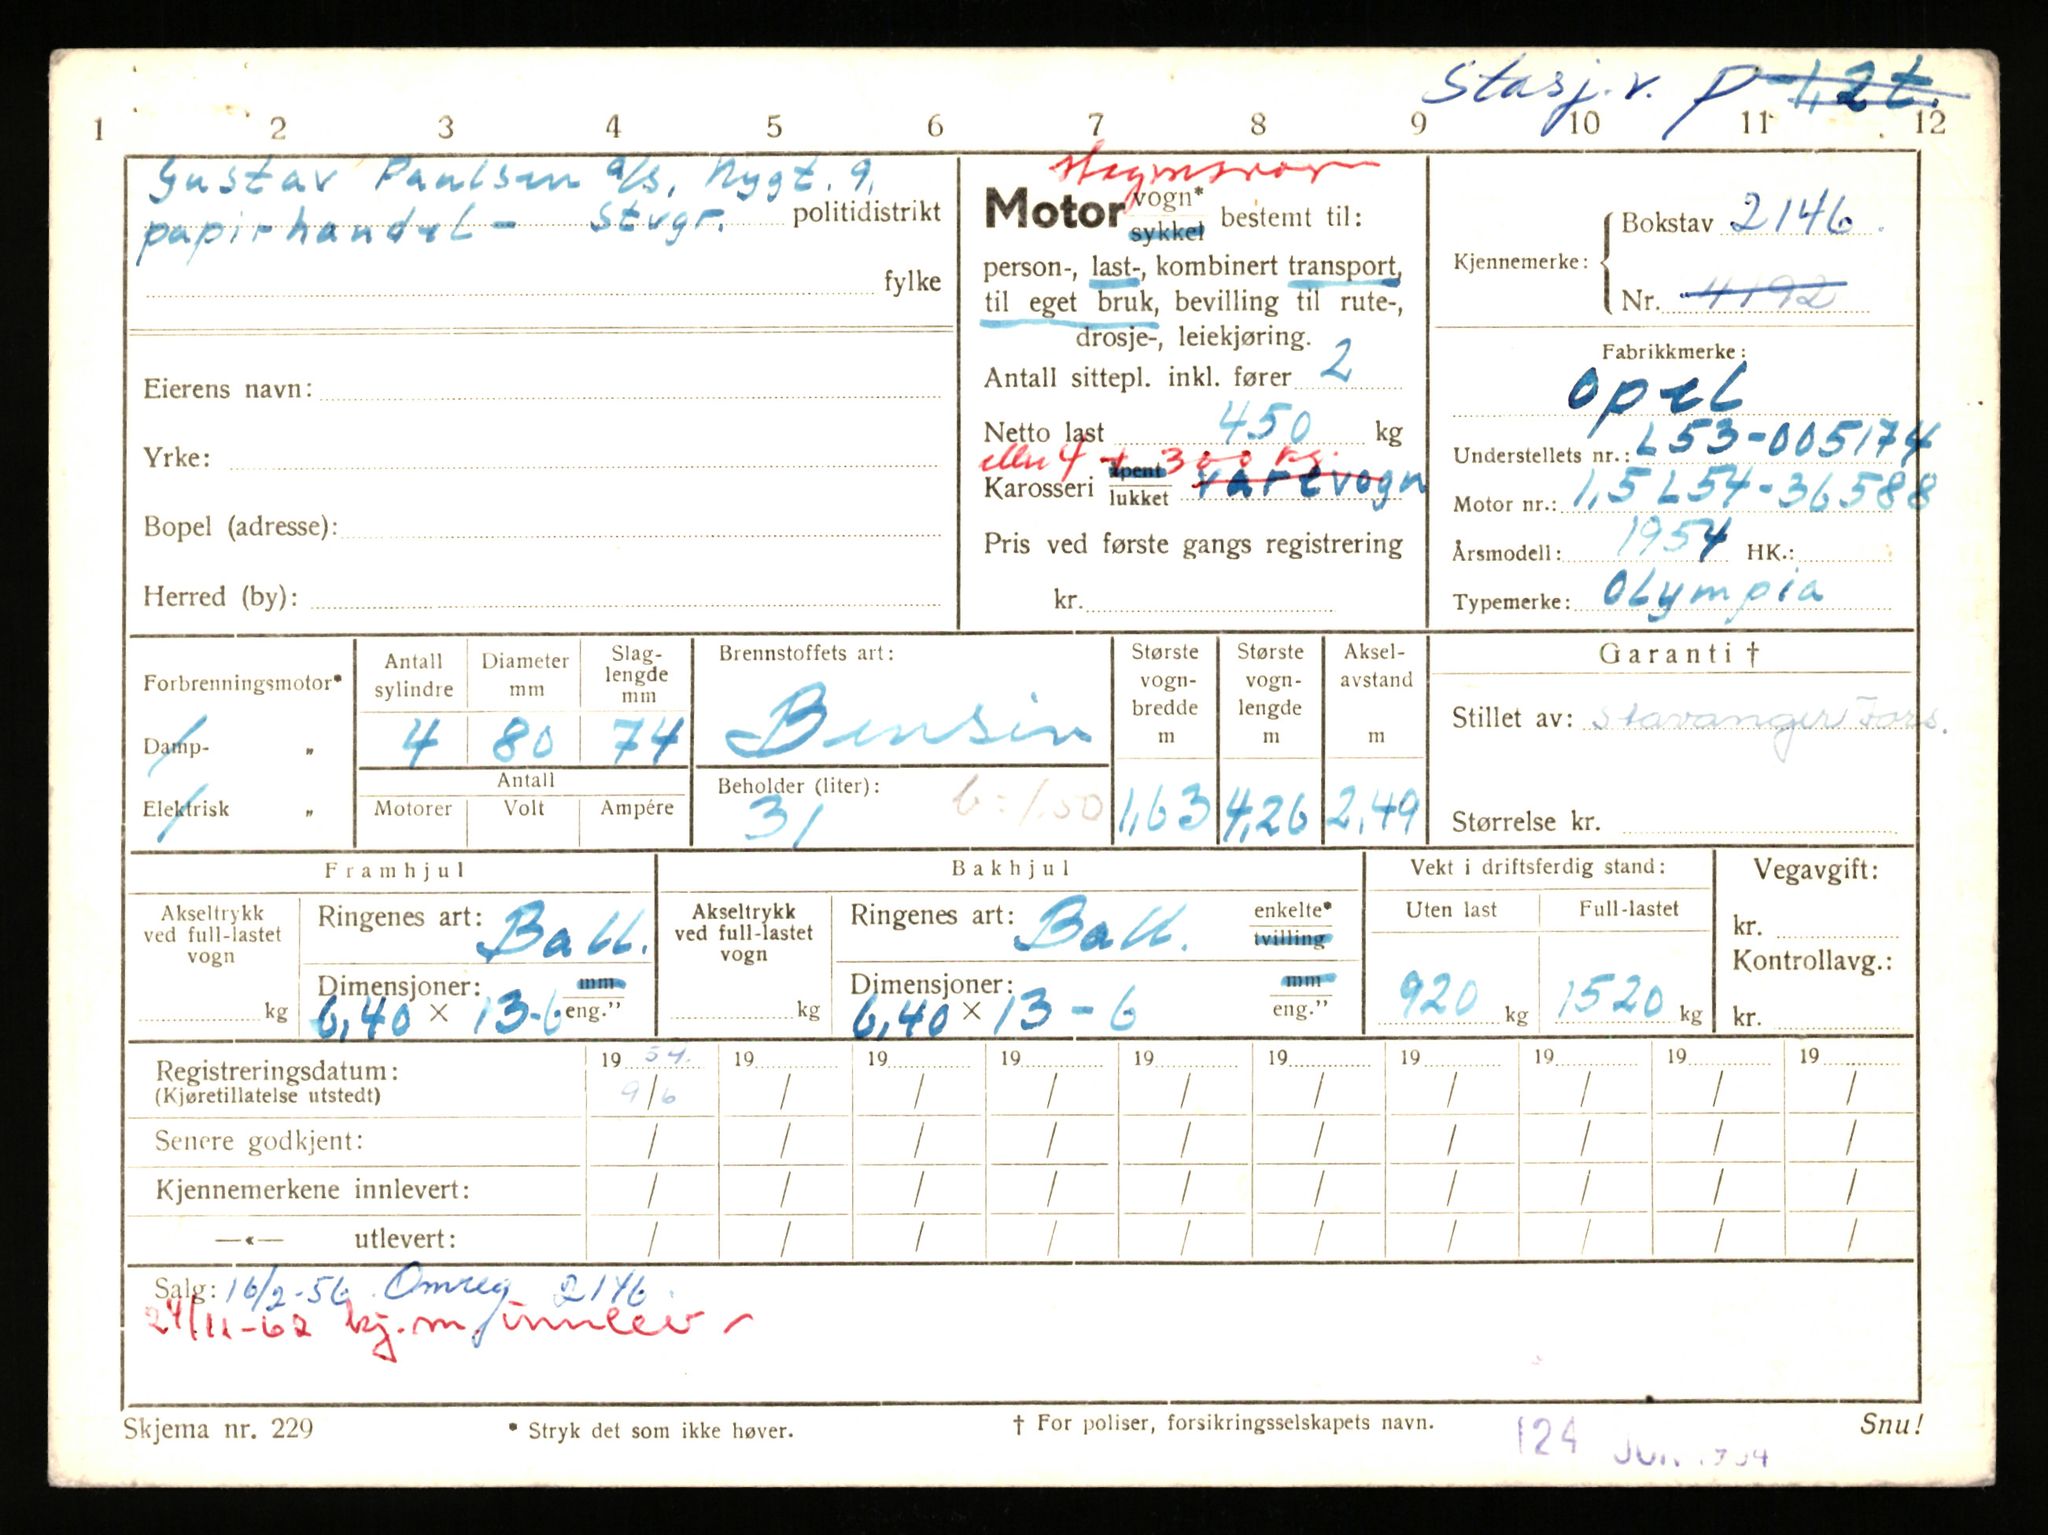 Stasj.v. p 1,2 t.
1 2 3 4 5 6 7 8 9 10 11 12
Gustav Paulsen a/s, Nygt. 9.
papirhandel - Stvgr. politidistrikt
fylke
Eierens navn:
Yrke:
Bopel (adresse):
Herred (by):
Motor vogn* sykkel bestemt til:
person-, last-, kombinert transport,
til eget bruk, bevilling til rute-,
drosje-, leiekjøring.
Antall sittepl. inkl. fører 2
Netto last 450 kg
eller 4 + 300 kg.
Karosseri åpent lukket varevogn
Pris ved første gangs registrering
kr.
Kjennemerke:
Bokstav 2146.
Nr. 4192
Fabrikkmerke:
Opel
Understellets nr.: L53-005174
Motor nr.: 1,5 L54-36588
Årsmodell: 1954 HK.:
Typemerke: Olympia
Forbrenningsmotor*
Damp- „
Elektrisk „
Antall sylindre
4
Diameter mm
80
Slag-lengde mm
74
Antall
Motorer Volt Ampére
Brennstoffets art:
Bensin
Beholder (liter):
31 b=1,50
Største vogn-bredde m
1,63
Største vogn-lengde m
4,26
Aksel-avstand m
2,49
Garanti †
Stillet av: Stavanger Fors.
Størrelse kr.
Framhjul
Akseltrykk ved full-lastet vogn
kg
Ringenes art: Ball.
Dimensjoner: mm
6,40 × 13-6 eng.”
Bakhjul
Akseltrykk ved full-lastet vogn
kg
Ringenes art: Ball. enkelte* tvilling
Dimensjoner: mm
6,40 × 13-6 eng.”
Vekt i driftsferdig stand:
Uten last Full-lastet
920 kg 1520 kg
Vegavgift:
kr.
Kontrollavg.:
kr.
Registreringsdatum: 19 54. 19 19 19 19 19 19 19 19 19
(Kjøretillatelse utstedt) 9/6 / / / / / / / / /
Senere godkjent: / / / / / / / / / /
Kjennemerkene innlevert: / / / / / / / / / /
—«— utlevert: / / / / / / / / / /
Salg: 16/2-56 Omreg 2146.
24/11-62 kj.m. innlev -
Skjema nr. 229
* Stryk det som ikke høver.
† For poliser, forsikringsselskapets navn.
124
Snu!